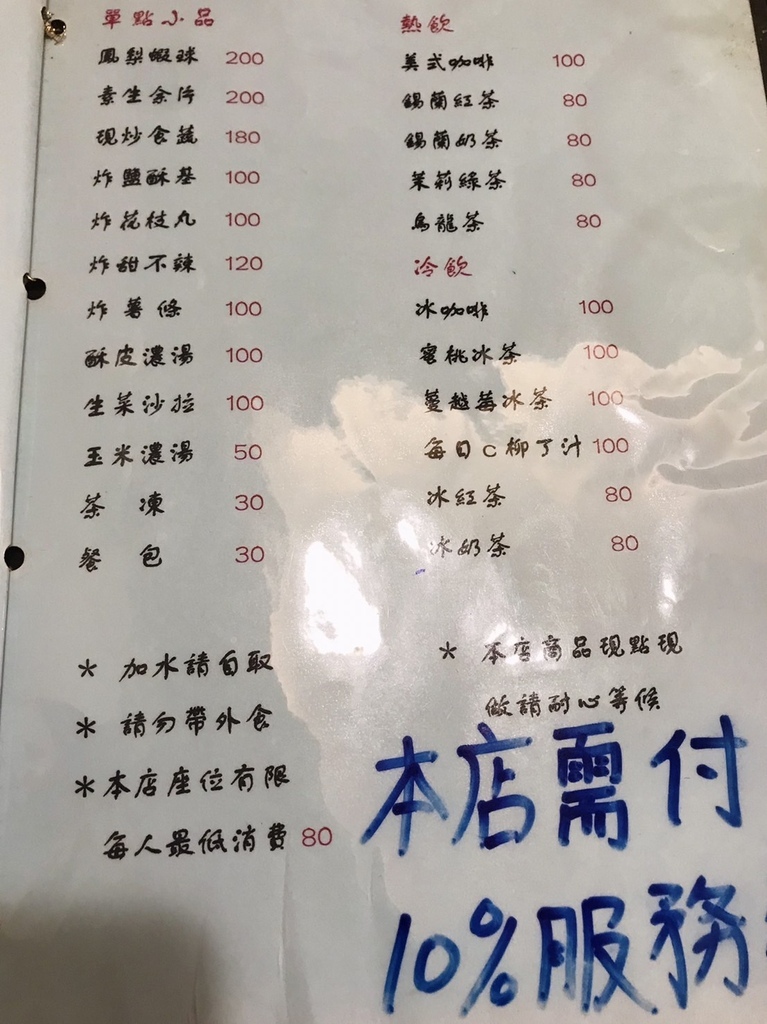 單點小品
鳳梨蝦球 200
素生魚片 200
現炒食蔬 180
炸鹽酥基 100
炸花枝丸 100
炸甜不辣 120
炸薯條 100
酥皮濃湯 100
生菜沙拉 100
玉米濃湯 50
茶凍 30
餐包 30
* 加水請自取
* 請勿帶外食
* 本店座位有限
每人最低消費 80
熱飲
美式咖啡 100
錫蘭紅茶 80
錫蘭奶茶 80
茉莉綠茶 80
烏龍茶 80
冷飲
冰咖啡 100
蜜桃冰茶 100
蔓越莓冰茶 100
每日C柳丁汁 100
冰紅茶 80
冰奶茶 80
* 本店商品現點現
做請耐心等候
本店需付
10%服務